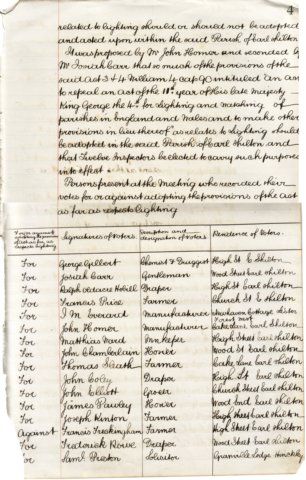 4
related to lighting should or should not be adopted
and acted upon within the said Parish of Earl Shilton
It was proposed by Mr John Homer and seconded by
Mr Josiah Carr that so much of the provisions of the
said Act 3 & 4 William 4 Cap 90 intituled "An act
to repeal an Act of the 11th year of His late Majesty
King George the 4th for Lighting and Watching of
parishes in England and Wales and to make other
provisions in lieu thereof as relates to lighting should
be adopted in the said Parish of Earl Shilton and
that Twelve Inspectors be elected to carry such purpose
into effect
Persons present at the Meeting who recorded their
votes for or against adopting the provisions of the Act
as far as respects lighting
Signatures of Voters. Description and designation of Voters Residence of Voters.
For George Gilbert Chemist & Druggist High St E. Shilton
For Josiah Carr Gentleman Wood Street Earl Shilton
For Ralph Oldacre Draper High St Earl Shilton
For Francis Price Farmer Church St E Shilton
For J W Everard Manufacturer Cottage
For John Homer Manufacturer Lane Earl Shilton
For Matthias Ward Innkeeper High Street Earl Shilton
For John Chamberlain Wood St Earl Shilton
For Thomas Heath Farmer Lane Earl Shilton
For John Coley Draper High St Earl Shilton
For John Elliott Grocer Church Street Earl Shilton
For James Pawley Wood End Earl Shilton
For Joseph Hinton Farmer High Street Earl Shilton
Against Francis Freckingham Farmer Earl Shilton
For Frederick Rowe Draper Wood Street Earl Shilton
For Saml Preston Solicitor Granville Lodge Hinckley